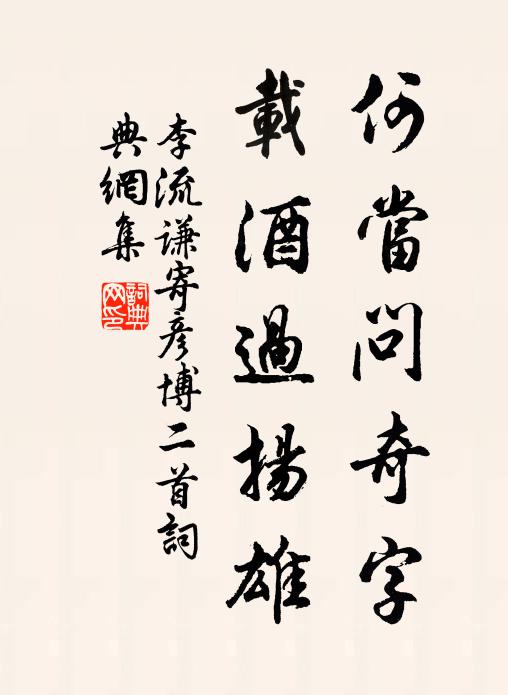 何當問奇字
載酒過揚雄
李流謙寄彥博二首詞
典網集
詞典网印